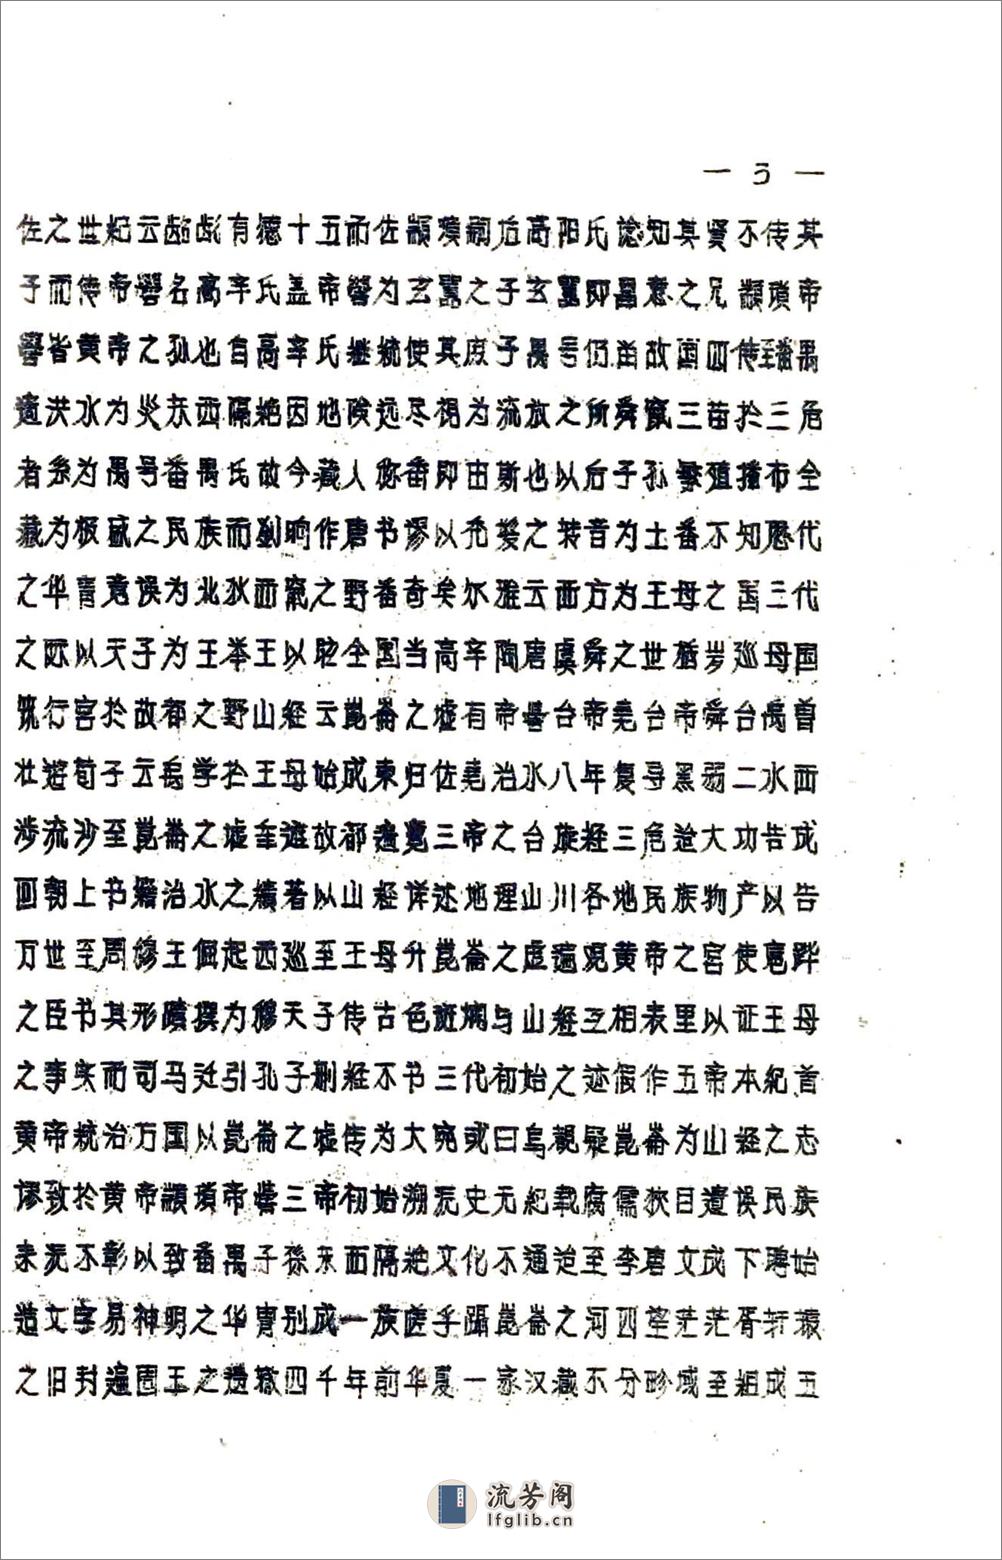 — 3 —
佐之世纪云龆龀有德十五而佐颛顼嗣后高阳氏谂知其贤不传其
子而传帝喾名高辛氏盖帝喾为玄嚣之子玄嚣即昌意之兄颛琐帝
喾皆黄帝之孙也自高辛氏继统使其庶子禺号仍留故国四传至番禺
遭洪水为災东西隔绝因地险远尽视为流放之所舜窜三苗於三危
者系为禺号番禺氏故今藏人称番即由斯也以后子孙繁殖播布全
藏为极盛之民族而刘昫作唐书谬以秃发之转音为土番不知历代
之华胄竟误为北狄而窜之野番奇矣尔雅云西方为王母之国三代
之际以天子为王举王以眩全国当高辛陶唐虞舜之世犹岁巡母国
筑行宫於故都之野山经云崑崙之墟有帝喾台帝尧台帝舜台禹曾
壮遊荀子云禹学扵王母始成东归佐尧治水八年复导黑弱二水而
涉流沙至崑崙之墟至遊故都遍览三帝之台旋经三危迨大功告成
回朝上书籍治水之绩著以山经详述地理山川各地民族物产以告
万世至周穆王倔起西巡至王母升崑崙之虚遍观黄帝之宫使扈跸
之臣书其形蹟撰为穆天子传古色斑斓与山经互相表里以证王母
之事实而司马迁引孔子删经不书三代初始之迹假作五帝本紀首
黄帝统治万国以崑崙之墟传为大宛或曰乌覩疑崑崙为山经之志
谬致於黄帝颛琐帝喾三帝初始溯元史无紀载腐儒狄目遗误民族
来无不彰以致番禺子孫东而隔绝文化不通迨至李唐文成下聘始
造文字易神明之华胄别成一族嗟乎蹋崑崙之河四望茫茫胥轩辕
之旧封遍园王之遗黎四千年前华夏一家汉藏不分畛域至组成五
流芳阁
lfglib.cn